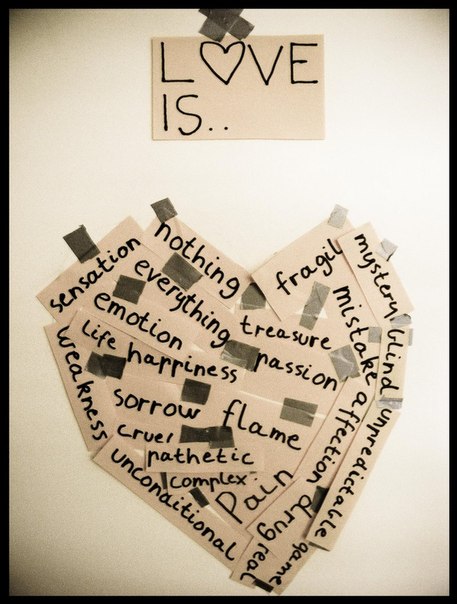 L♡VE
IS..
nothing
sensation
everything
emotion
life
happiness
weakness
fragil
mystery
treasure
mistake
blind
passion
sorrow
flame
affection
unpredictable
cruel
pathetic
complex
pain
unconditional
drug
real
game